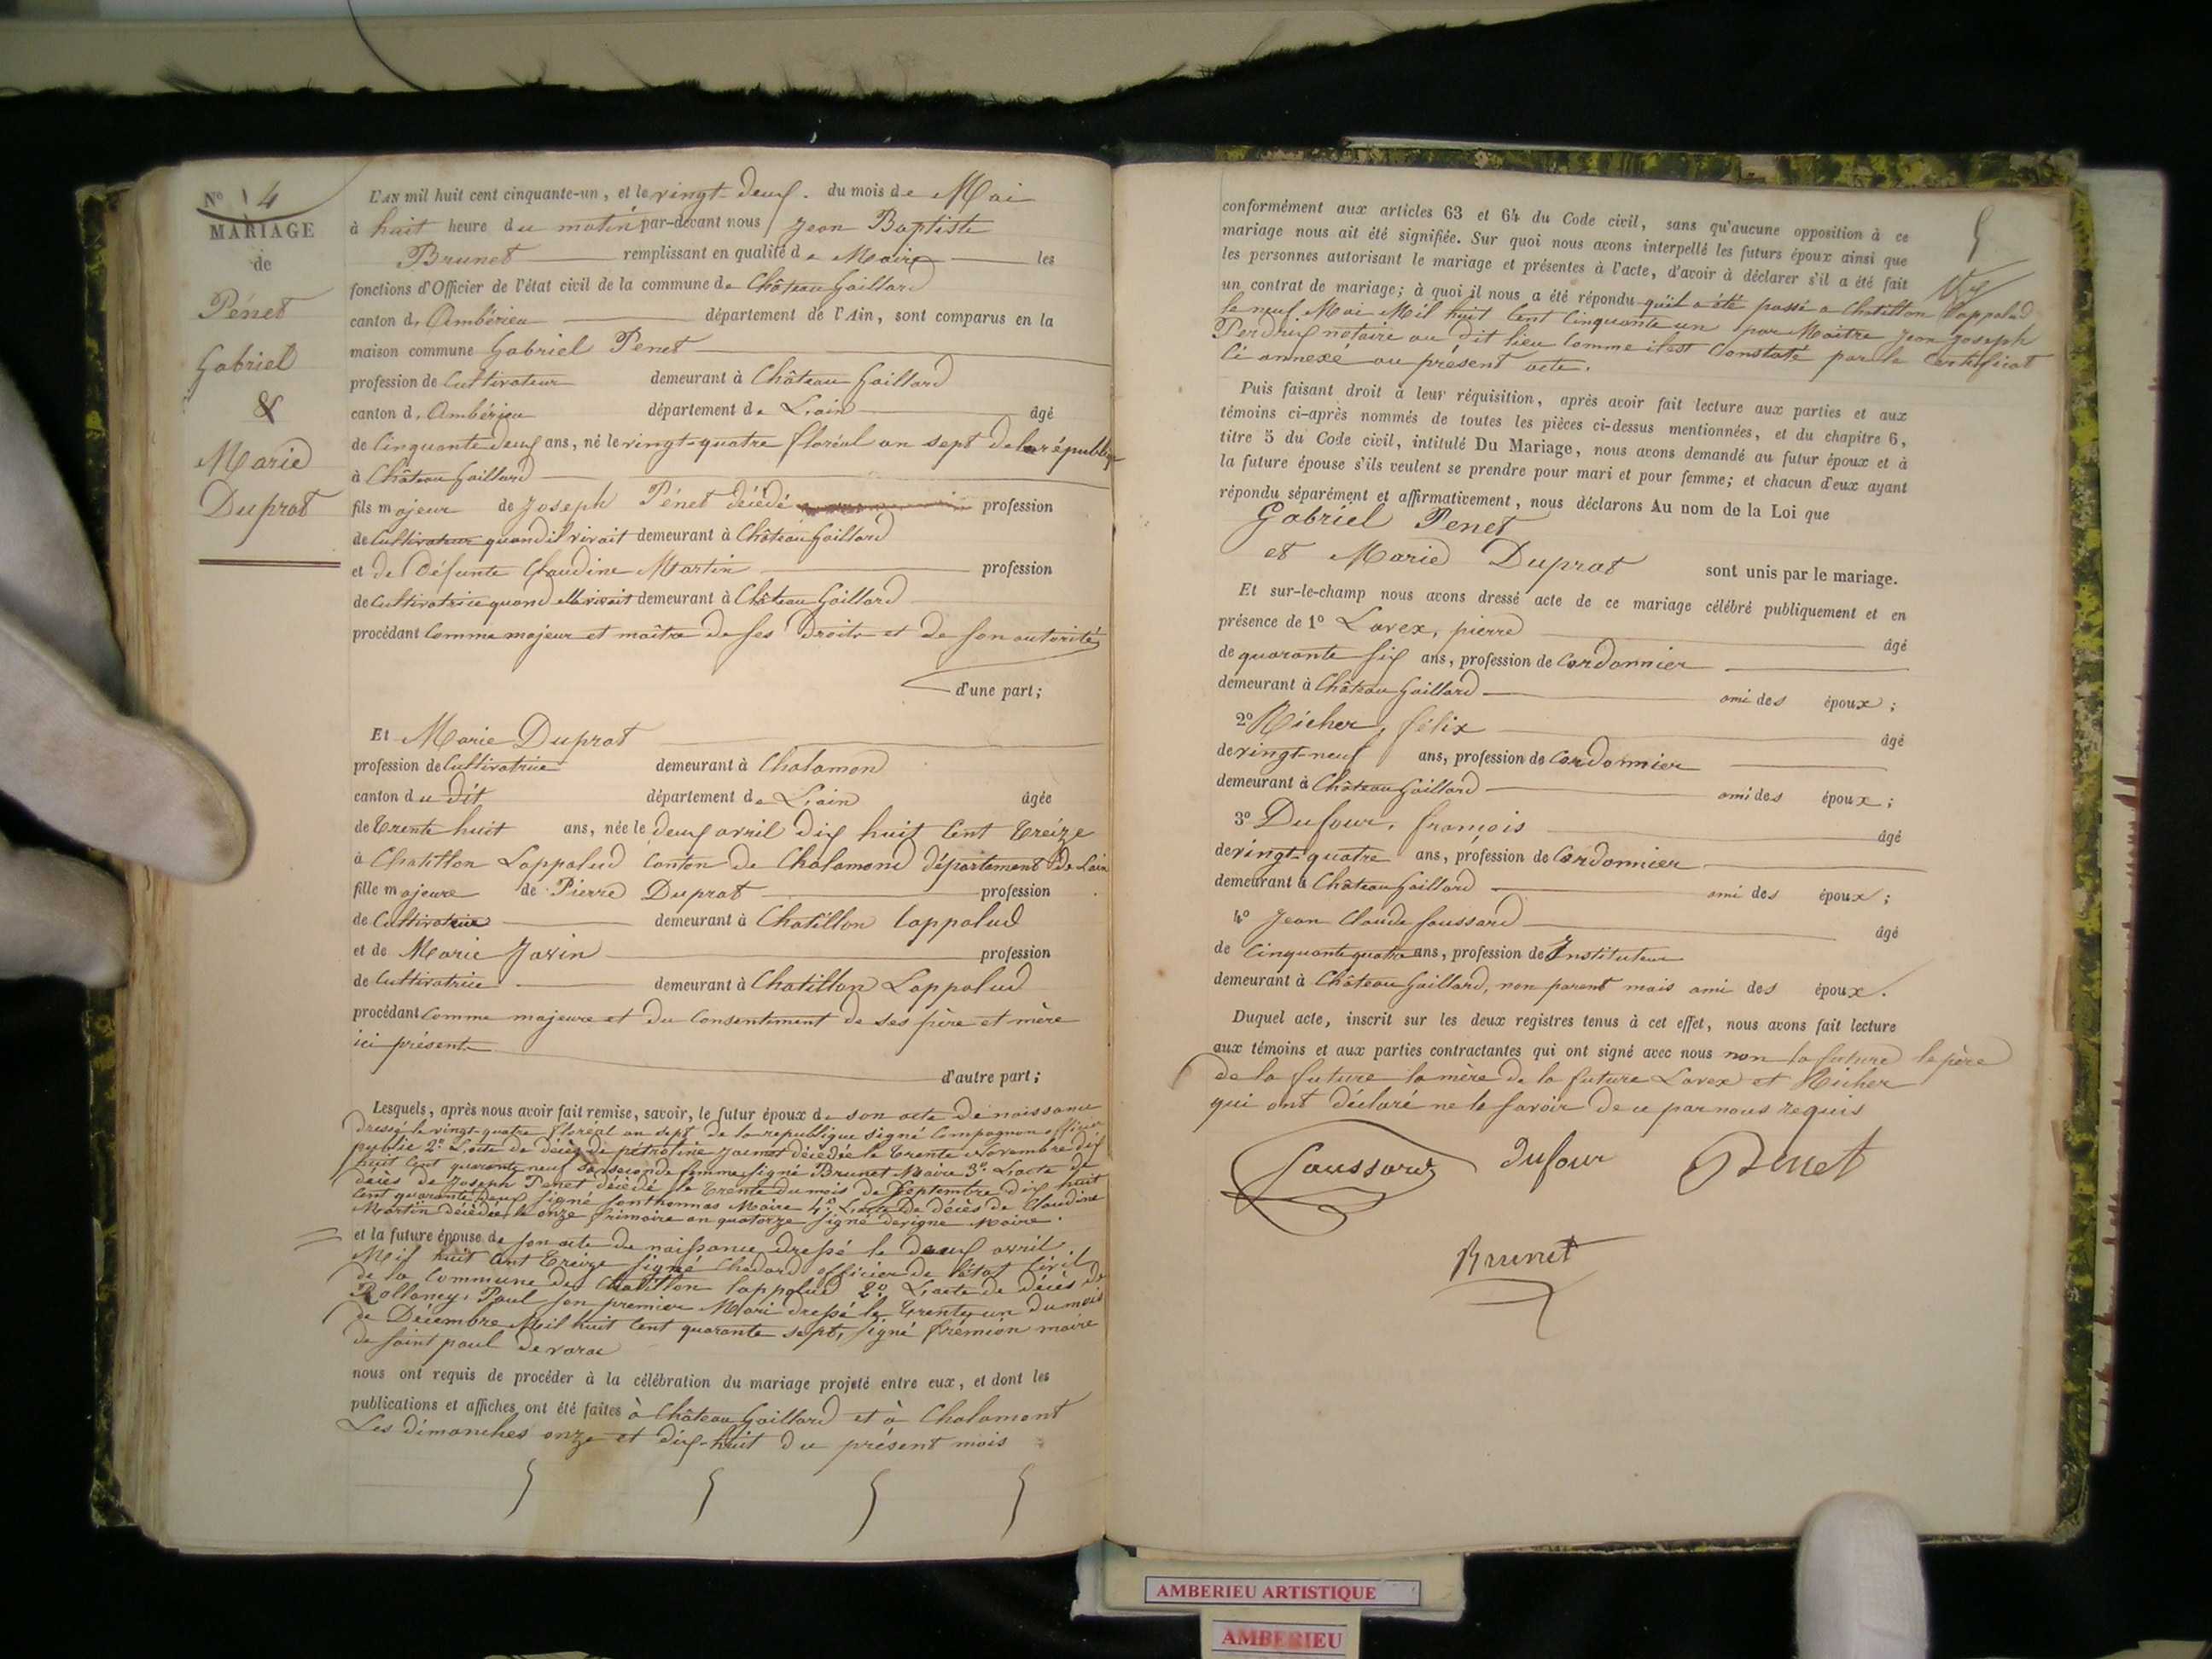 N° 4
MARIAGE
de
Pénet
Gabriel
&
Marie
Duprat
L'AN mil huit cent cinquante-un, et le vingt-deux. du mois de Mai
à huit heure du matin par-devant nous Jean Baptiste
Brunet remplissant en qualité de Maire les
fonctions d'Officier de l'état civil de la commune de Château Gaillard
canton d'Ambérieu département de l'Ain, sont comparus en la
maison commune Gabriel Penet
profession de Cultivateur demeurant à Château Gaillard
canton d'Ambérieu département de L'ain âgé
de Cinquante deux ans, né le vingt-quatre floréal an sept de la républiq
à Château Gaillard
fils majeur de Joseph Pénet décédé profession
de Cultivateur quand il vivait demeurant à Château Gaillard
et de Défunte Claudine Martin profession
de Cultivatrice quand elle vivait demeurant à Château Gaillard
procédant Comme majeur et maître de ses Droits et de son autorité
d'une part;
Et Marie Duprat
profession de Cultivatrice demeurant à Chalamon
canton du dit département de L'ain âgée
de Trente huit ans, née le deux avril dix huit Cent Treize
à Chatillon Lappalud Canton de Chalamond département de Lain
fille majeure de Pierre Duprat profession
de Cultivateur demeurant à Chatillon lappalud
et de Marie Javin profession
de Cultivatrice demeurant à Chatillon Lappalud
procédant Comme majeure et du Consentement de ses père et mère
ici présent
d'autre part;
Lesquels, après nous avoir fait remise, savoir, le futur époux de son acte de naissance
dressé le vingt-quatre floréal an sept de la republique signé Compagnon officier
public 2° L'acte de décès de pétroline Jacmot décédée le trente Novembre dix
huit Cent quarante neuf sa seconde femme, signé Brunet Maire 3° L'acte de
décès de Joseph Penet décédé le Trente du mois de Septembre dix huit
Cent quarante deux signé Maire 4° L'acte De décès de Claudine
Martin décédée le onze frimaire an quatorze signé derigne Maire.
et la future épouse de son acte de naissance dressé le deux avril
Mil huit Cent Treize signé Chadard officier de l'état Civil
de la Commune de Chatillon lappalud 2° L'acte de décès de
Rollancy, Paul son premier Mari dressé le Trente-un du mois
de Décembre Mil huit Cent quarante sept, signé frémion maire
de saint paul de varax
nous ont requis de procéder à la célébration du mariage projeté entre eux, et dont les
publications et affiches ont été faites à Château Gaillard et à Chalamont
Les dimanches onze et dix-huit du présent mois
conformément aux articles 63 et 64 du Code civil, sans qu'aucune opposition à ce
mariage nous ait été signifiée. Sur quoi nous avons interpellé les futurs époux ainsi que
les personnes autorisant le mariage et présentes à l'acte, d'avoir à déclarer s'il a été fait
un contrat de mariage; à quoi il nous a été répondu qu'il a été passé a Chatillon lappalud
le neuf Mai Mil huit Cent Cinquante un par Maître Jean Joseph
Perdrix notaire au dit lieu Comme il est Constaté par le Certificat
Ci annexé au présent acte.
Puis faisant droit à leur réquisition, après avoir fait lecture aux parties et aux
témoins ci-après nommés de toutes les pièces ci-dessus mentionnées, et du chapitre 6,
titre 5 du Code civil, intitulé Du Mariage, nous avons demandé au futur époux et à
la future épouse s'ils veulent se prendre pour mari et pour femme; et chacun d'eux ayant
répondu séparément et affirmativement, nous déclarons Au nom de la Loi que
Gabriel Penet
et Marie Duprat sont unis par le mariage.
Et sur-le-champ nous avons dressé acte de ce mariage célébré publiquement et en
présence de 1° Lavex, pierre âgé
de quarante six ans, profession de Cordonnier
demeurant à Château Gaillard ami des époux;
2° Richer, félix âgé
de vingt-neuf ans, profession de Cordonnier
demeurant à Château Gaillard ami des époux;
3° Dufour, françois âgé
de vingt-quatre ans, profession de Cordonnier
demeurant à Château Gaillard ami des époux;
4° Jean Claude Goussard âgé
de Cinquante quatre ans, profession de Instituteur
demeurant à Château Gaillard, non parent mais ami des époux.
Duquel acte, inscrit sur les deux registres tenus à cet effet, nous avons fait lecture
aux témoins et aux parties contractantes qui ont signé avec nous non la future le père
de la future la mère de la future Lavex et Richer
qui ont déclaré ne le savoir de ce par nous requis
Goussard Dufour Penet
Brunet
AMBERIEU ARTISTIQUE
AMBERIEU